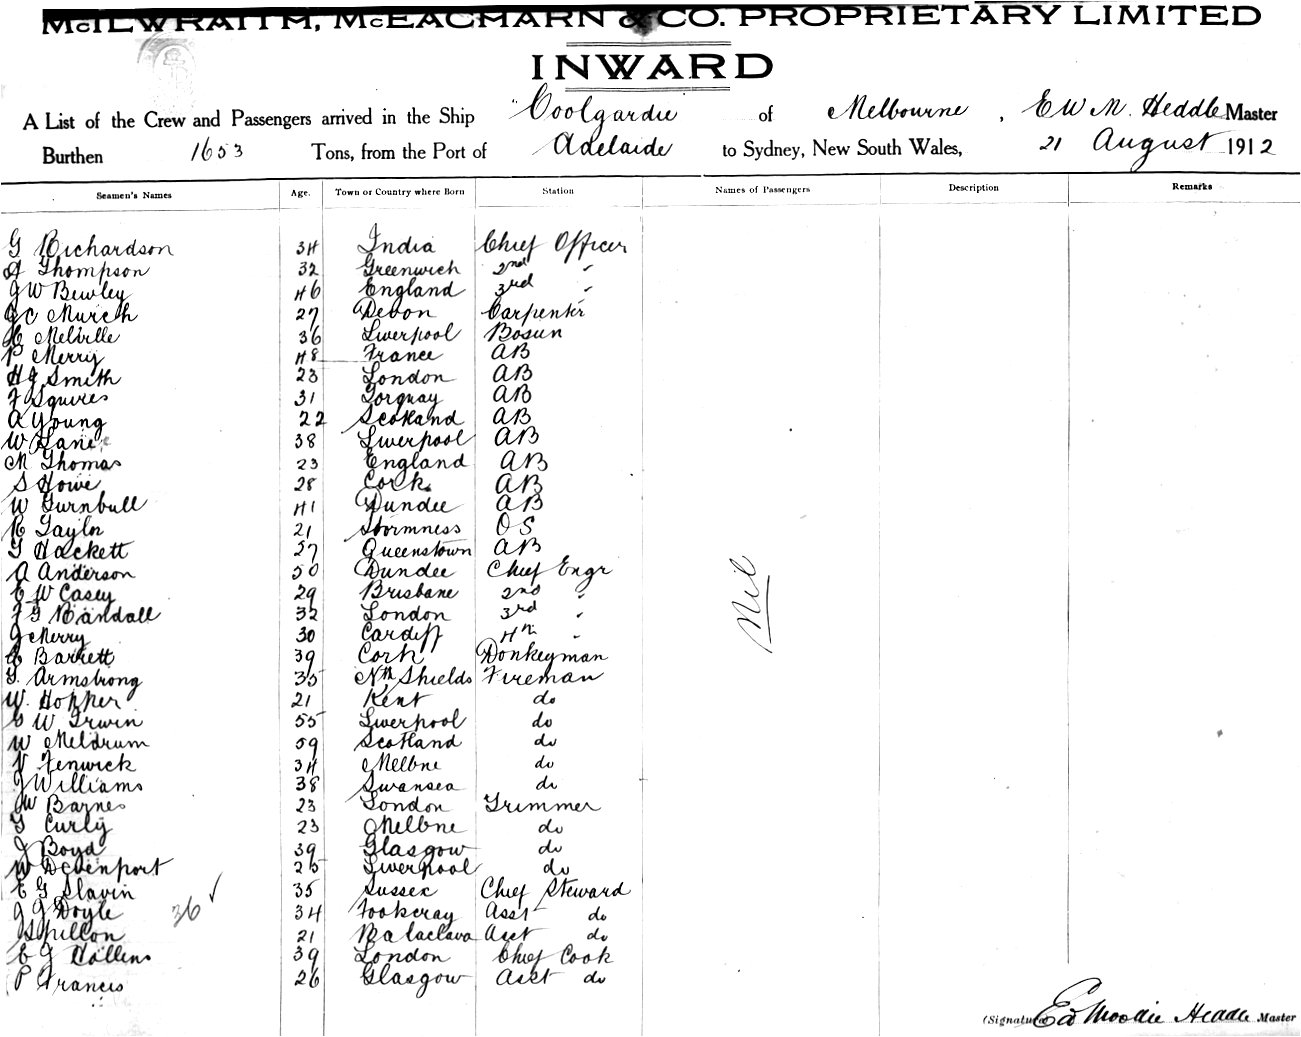 McILWRAITH, McEACHARN & CO. PROPRIETARY LIMITED
INWARD
A List of the Crew and Passengers arrived in the Ship "Coolgardie of Melbourne, E W M. Heddle Master
Burthen 1653 Tons, from the Port of Adelaide to Sydney, New South Wales, 21 August 1912
Seamen's Names Age. Town or Country where Born Station Names of Passengers Description Remarks
G Richardson 34 India Chief Officer
A Thompson 32 Greenwich 2nd "
J W Bewley 46 England 3rd "
J C Murch 27 Devon Carpenter
H Melville 36 Liverpool Bosun
P Merry 48 France AB
H J Smith 23 London AB
F Squires 31 Torquay AB
A Young 22 Scotland AB
W Lane 38 Liverpool AB
M Thomas 23 England AB
S Howe 28 Cork AB
W Turnbull 41 Dundee AB
R Taylor 21 Stormness OS
T Hackett 57 Queenstown AB
A Anderson 50 Dundee Chief Engr
E W Casey 29 Brisbane 2nd "
F G Randall 32 London 3rd "
J Merry 30 Cardiff 4th "
Barrett 39 Cork Donkeyman
T. Armstrong 35 Nth Shields Fireman
W. Hopper 21 Kent do
G W Irwin 55 Liverpool do
W Meldrum 59 Scotland do
V Fenwick 34 Melbne do
J Williams 38 Swansea do
J W Barnes 23 London Trimmer
T Curly 23 Melbne do
J Boyd 39 Glasgow do
W Devenport 25 Liverpool do
E G Slavin 35 Sussex Chief Steward
J J Doyle 34 Footscray Asst do
J Spillon 21 Balaclava Asst do
E J Hollins 39 London Chief Cook
P Francis 26 Glasgow Asst do
36 ✓
Nil
(Signature) Ed Moodie Heddle Master